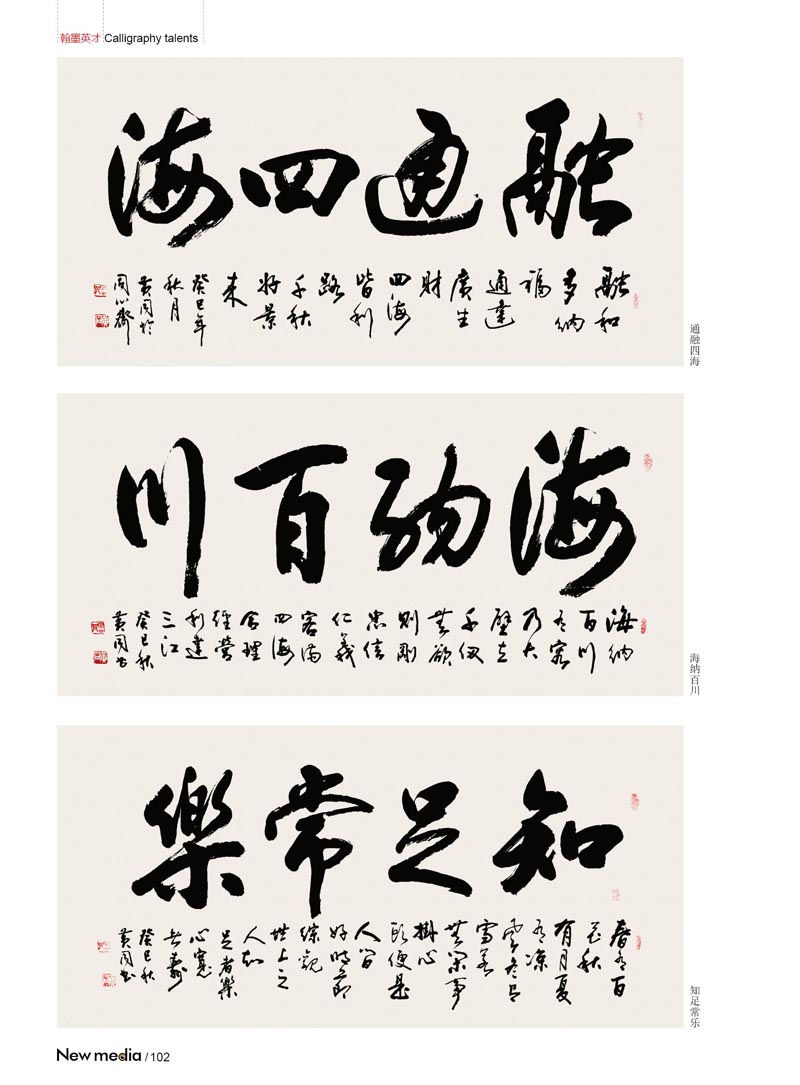 翰墨英才 Calligraphy talents
融通四海
融和
多纳
福
通達
廣生
財
四海
皆利
路
千秋
好景
来
癸巳年
秋月
黄同於
同心齋
通融四海
海纳百川
海纳
百川
有容
乃大
壁立
千仞
無欲
则剛
忠信
仁義
容満
四海
合理
經營
利達
三江
癸巳秋
黄同书
海纳百川
知足常樂
春有百
花秋
有月夏
有凉
風冬有
雪若
無闲事
掛心
頭便是
人间
好時節
綜觀
世上之
人知
足者樂
心寬
者壽
癸巳秋
黄同书
知足常乐
New media / 102